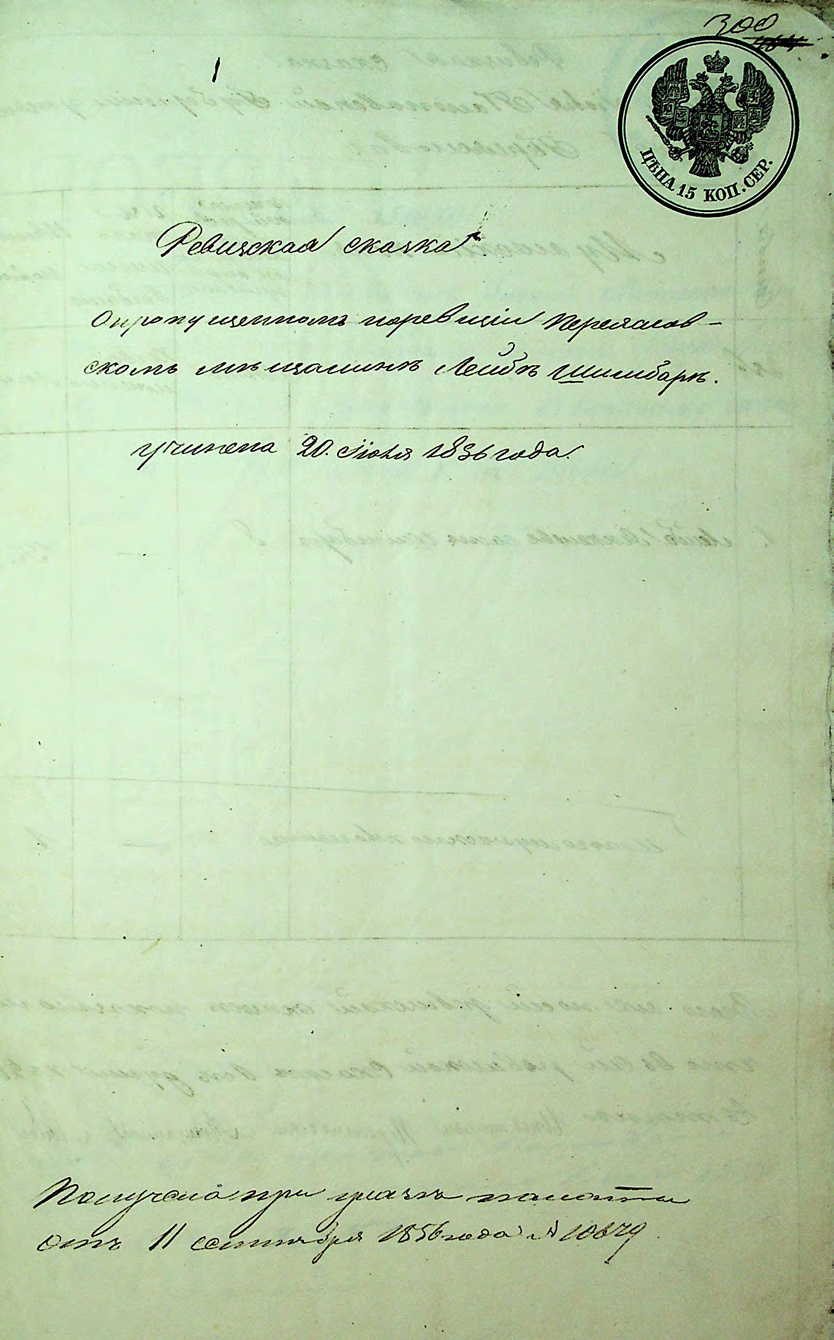 300
1
ЦѢНА 15 КОП. СЕР.
Ревизская сказка
Опропущенномъ поревизіи Переяслов-
скомъ мѣщанинѣ Лейбѣ Шимбарѣ.
Учинена 20. Іюля 1856 года.
Получена при указѣ палаты
отъ 11 сентября 1856 года №